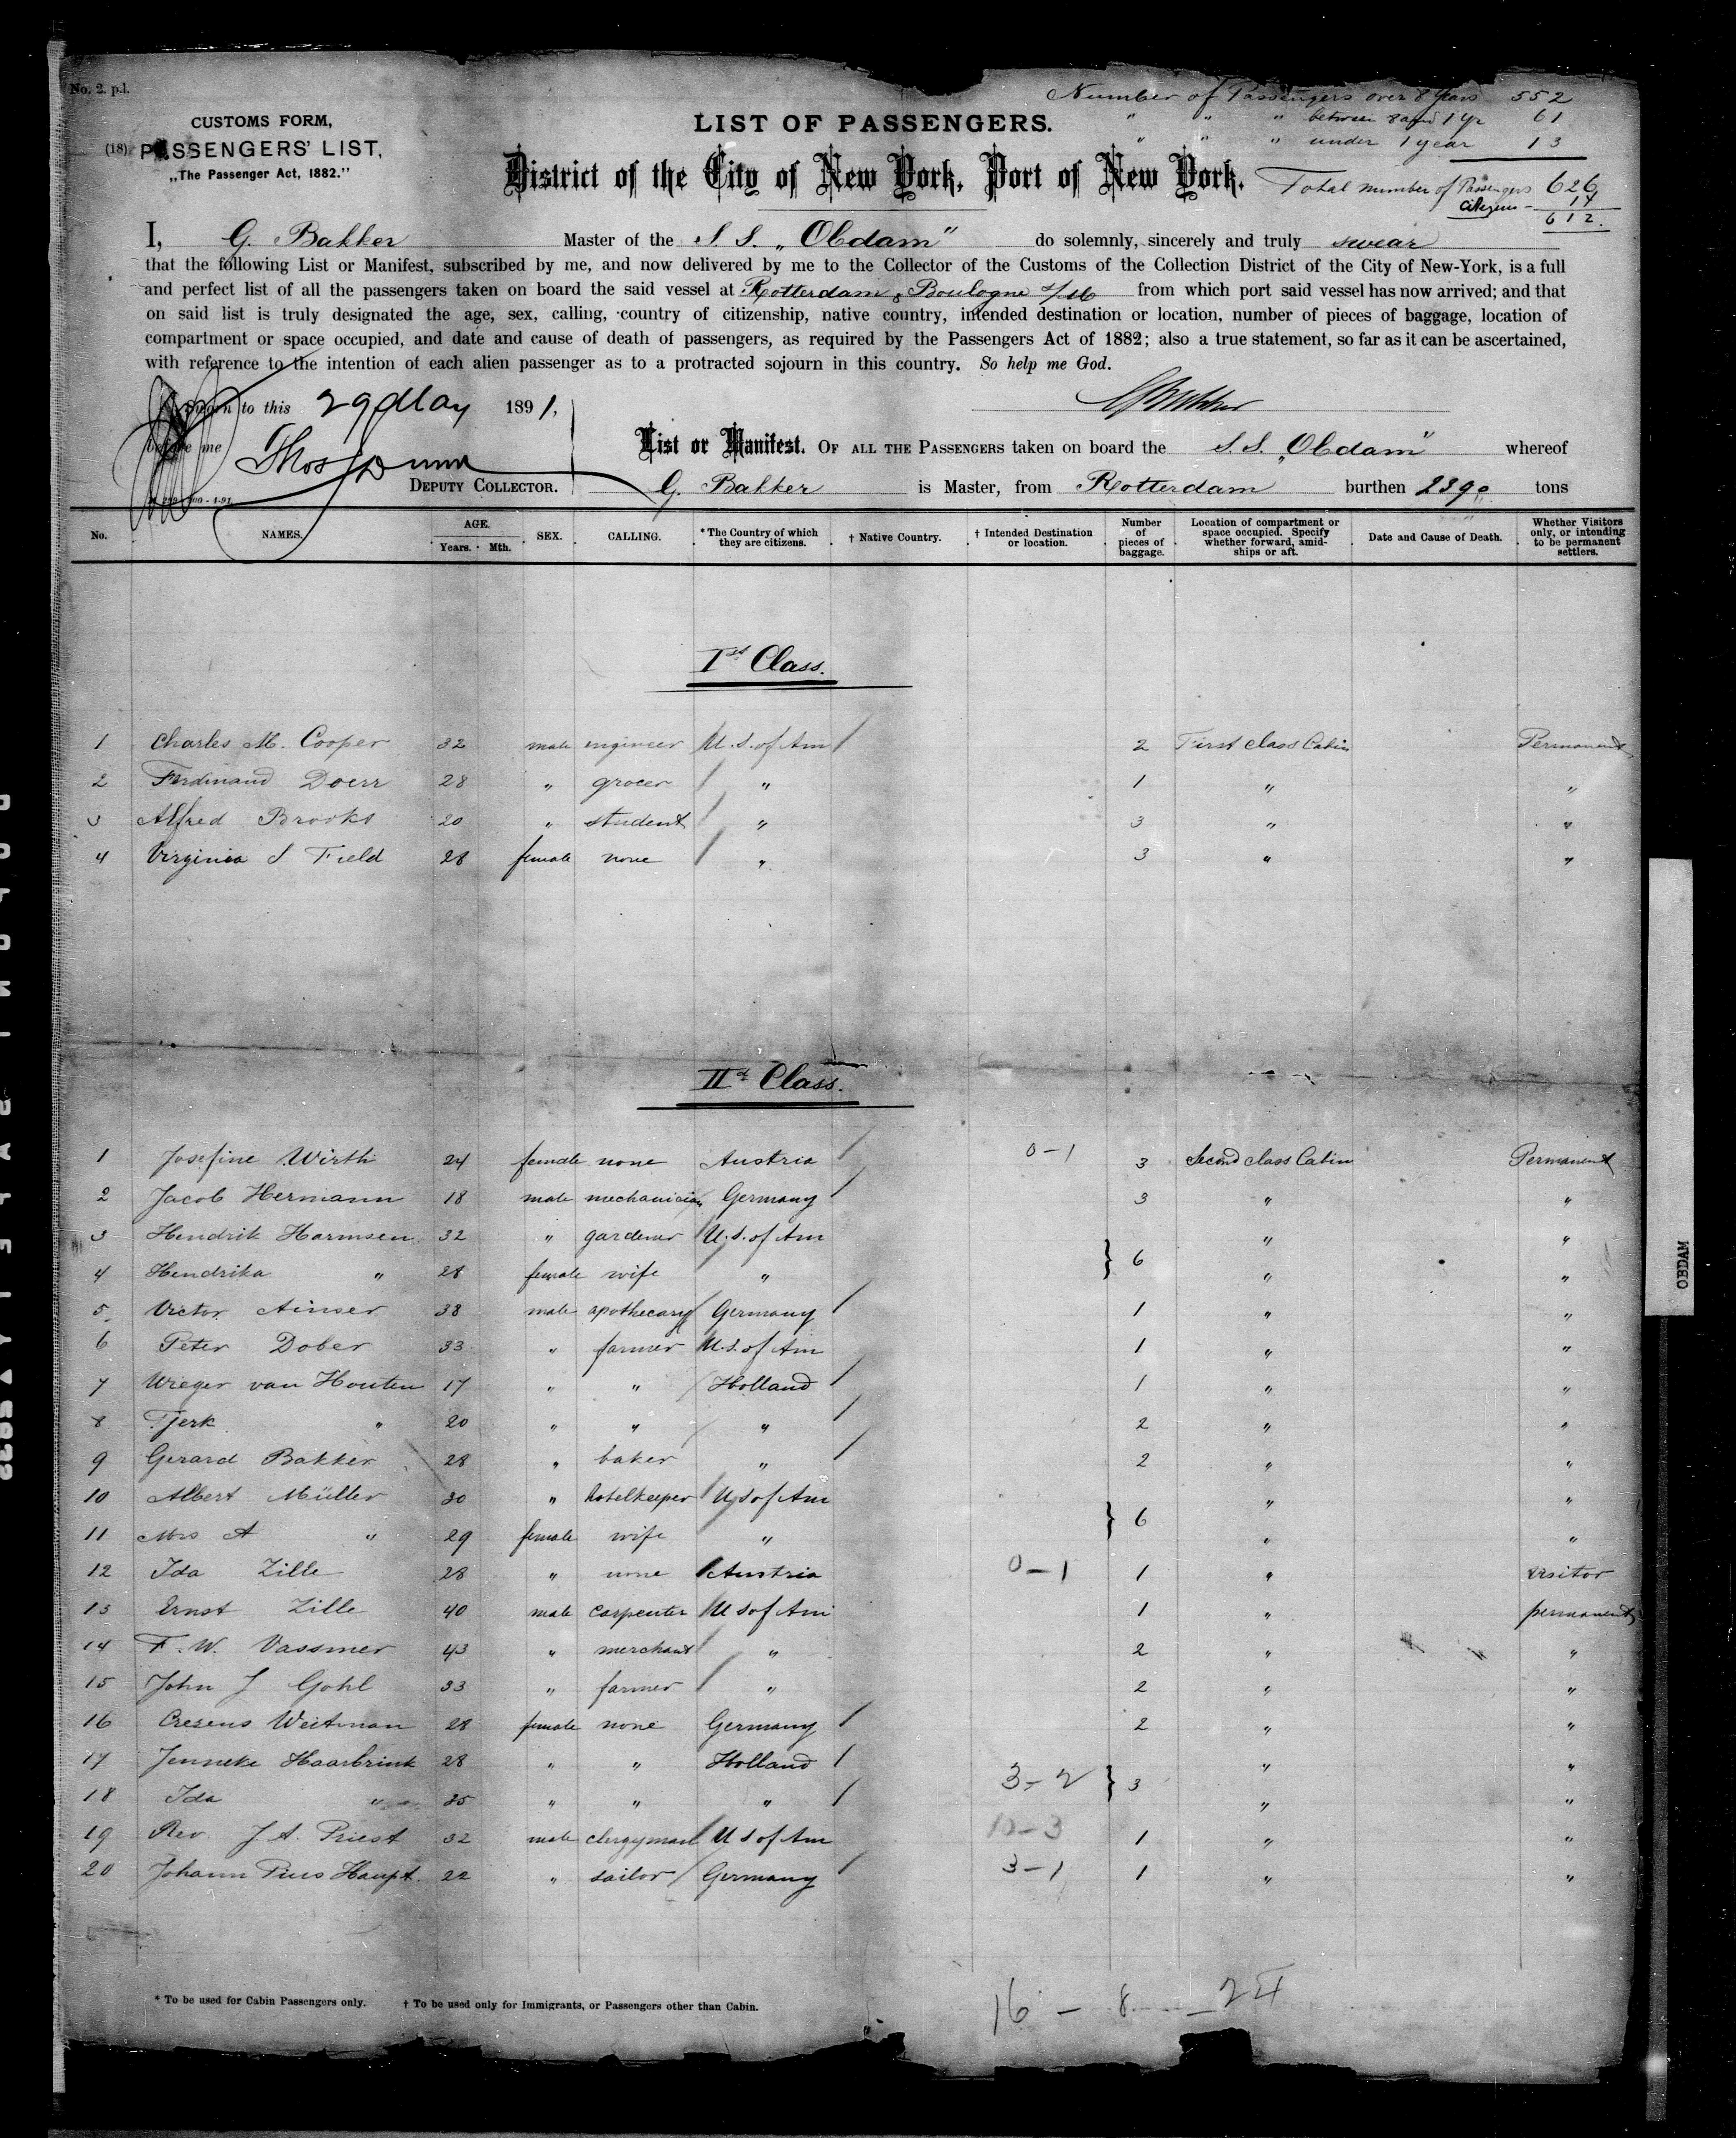 No. 2. p.l.
CUSTOMS FORM,
(18) PASSENGERS' LIST,
„The Passenger Act, 1882.”
Number of Passengers over 8 years 552
" " " between 8 and 1 yr 61
" " " under 1 year 13
Total number of Passengers 626
citizens - 14
612.
LIST OF PASSENGERS.
District of the City of New York, Port of New York.
I, G. Bakker Master of the S.S. „Obdam" do solemnly, sincerely and truly swear
that the following List or Manifest, subscribed by me, and now delivered by me to the Collector of the Customs of the Collection District of the City of New-York, is a full
and perfect list of all the passengers taken on board the said vessel at Rotterdam & Boulogne s/M from which port said vessel has now arrived; and that
on said list is truly designated the age, sex, calling, country of citizenship, native country, intended destination or location, number of pieces of baggage, location of
compartment or space occupied, and date and cause of death of passengers, as required by the Passengers Act of 1882; also a true statement, so far as it can be ascertained,
with reference to the intention of each alien passenger as to a protracted sojourn in this country. So help me God.
Sworn to this 29 May 1891,
before me Thos Dunn
DEPUTY COLLECTOR.
List or Manifest. OF ALL THE PASSENGERS taken on board the S.S. „Obdam" whereof
G. Bakker is Master, from Rotterdam burthen 2390 tons
No. NAMES. AGE. Years. Mth. SEX. CALLING. * The Country of which they are citizens. † Native Country. † Intended Destination or location. Number of pieces of baggage. Location of compartment or space occupied. Specify whether forward, amidships or aft. Date and Cause of Death. Whether Visitors only, or intending to be permanent settlers.
Ist Class.
1 Charles M. Cooper 32 male engineer U.S. of Am 2 First class Cabin Permanent
2 Ferdinand Doerr 28 " grocer " 1 " "
3 Alfred Brooks 20 " student " 3 " "
4 Virginia S Field 28 female none " 3 " "
IId Class.
1 Josefine Wirth 24 female none Austria 0-1 3 Second class Cabin Permanent
2 Jacob Hermann 18 male mechanician Germany 3 " "
3 Hendrik Harmsen 32 " gardener U.S. of Am } 6 " "
4 Hendrika " 28 female wife " " "
5 Victor Ainser 38 male apothecary Germany 1 " "
6 Peter Dober 33 " farmer U.S. of Am 1 " "
7 Wieger van Houten 17 " " Holland 1 " "
8 Tjerk " 20 " " " 2 " "
9 Gerard Bakker 28 " baker " 2 " "
10 Albert Müller 30 " hotelkeeper U S of Am } 6 " "
11 Mrs A " 29 female wife " " "
12 Ida Zille 28 " none Austria 0-1 1 " visitor
13 Ernst Zille 40 male carpenter U S of Am 1 " permanent
14 F. W. Vassmer 43 " merchant " 2 " "
15 John J Gohl 33 " farmer " 2 " "
16 Cresens Weitman 28 female none Germany 2 " "
17 Jenneke Haarbrink 28 " " Holland } 3 " "
18 Ida " 35 " " " 3-2 " "
19 Rev. J. A. Priest 32 male clergyman U S of Am 10-3 1 " "
20 Johann Pius Haupt. 22 " sailor Germany 3-1 1 " "
16 - 8 - 24
* To be used for Cabin Passengers only. † To be used only for Immigrants, or Passengers other than Cabin.
OBDAM